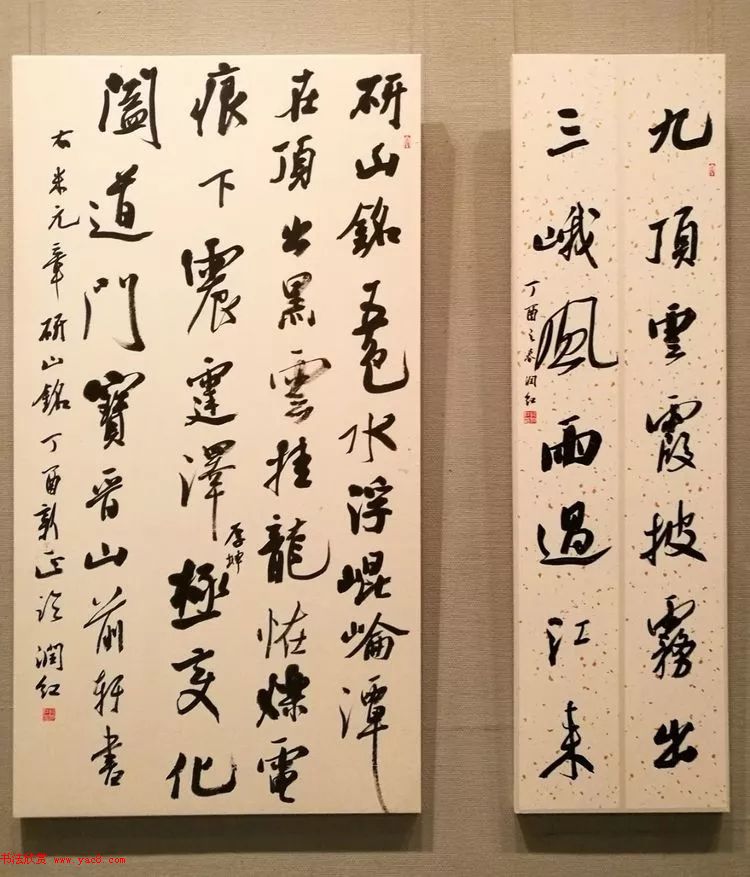 九頂雲霞披霧出
三峨風雨過江來
丁酉之春潤紅
研山銘五色水浮崐崘潭
在頂出黑雲挂龍恠爍電
痕下震霆澤極變化
厚坤
闔道門寶晉山前軒書
右米元章研山銘丁酉正潤紅
书法欣赏 www.yac8.com